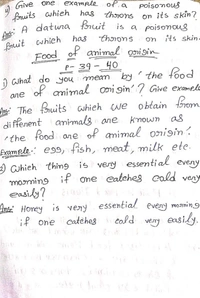 9) Give one example of a poisonous
fruits which has thorns on its skin?
Ans: A datura fruit is a poisonous
fruit which has thorns on its skin.
Food of animal origin
P- 39 - 40
1) What do you mean by 'the food
are of animal origin'? Give example
Ans: The fruits which we obtain from
different animals are known as
'the food are of animal origin'.
Example:- egg, fish, meat, milk etc.
2) Which thing is very essential every
morning if one catches cold very
easily?
Ans: Honey is very essential every morning
if one catches cold very easily.